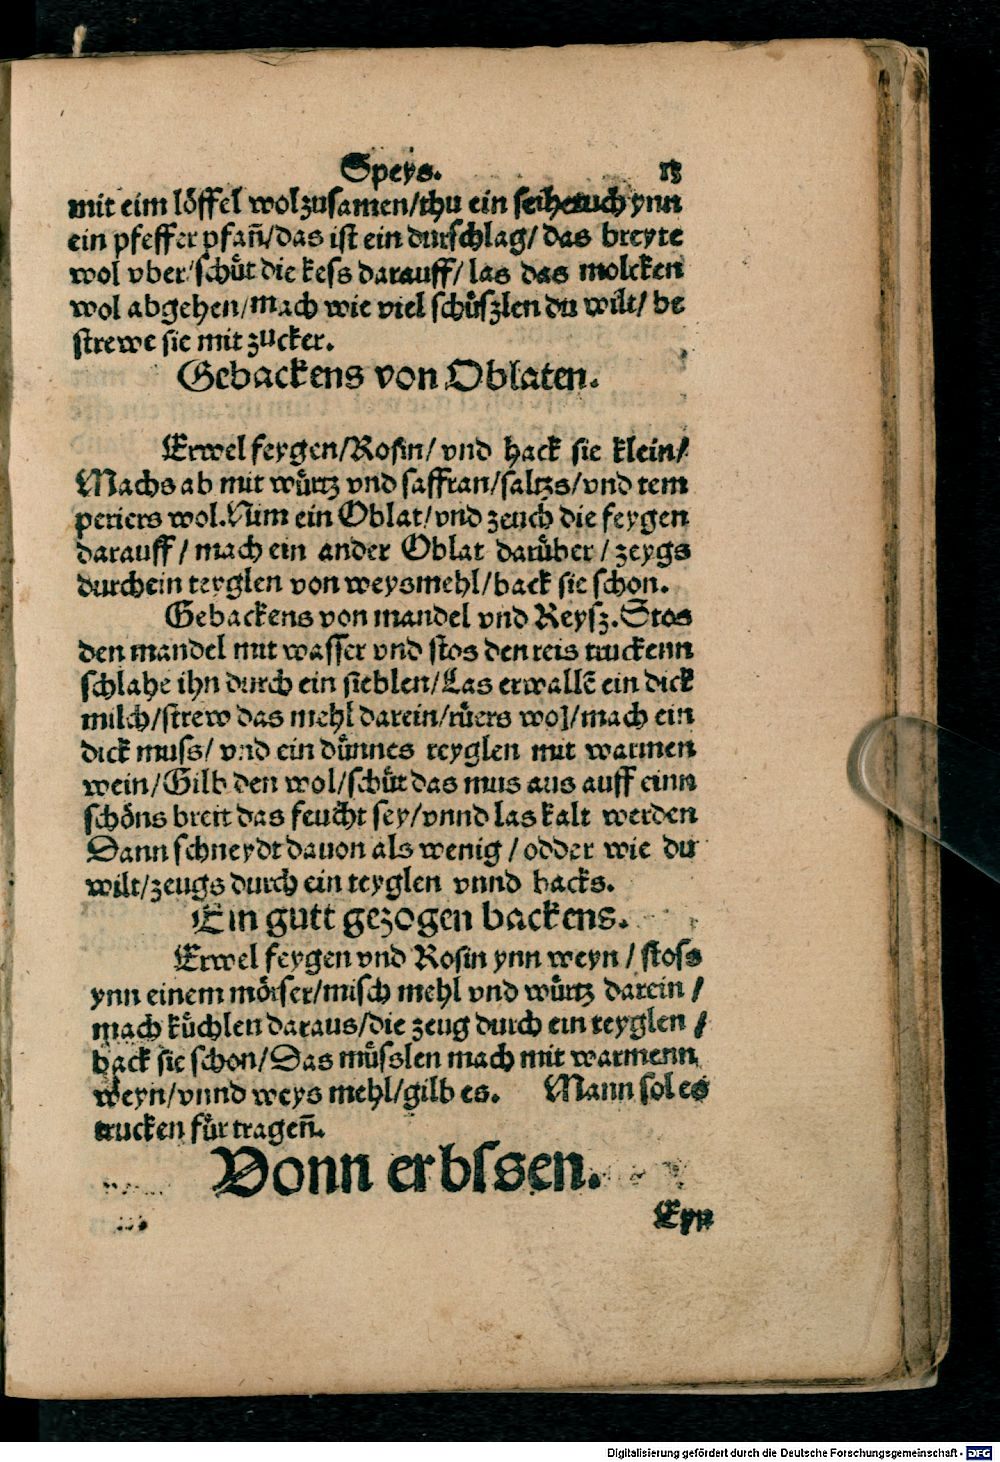 Speys. 13
mit eim löffel wol zusamen/thu ein seihetuch ynn
ein pfeffer pfañ/das ist ein durschlag/ das breyte
wol vber/schüt die kess darauff/ las das molcken
wol abgehen/mach wie viel schüszlen du wilt/ be
strewe sie mit zucker.
Gebackens von Oblaten.
Erwel feygen/Rosin/ vnd hack sie klein/
Machs ab mit würtz vnd saffran/saltzs/vnd tem
periers wol.Nim ein Oblat/vnd zeuch die feygen
darauff/ mach ein ander Oblat darüber/ zeygs
durch ein teyglen von weysmehl/back sie schon.
Gebackens von mandel vnd Reysz.Stos
den mandel mit wasser vnd stos den reis truckenn
schlahe ihn durch ein sieblen/Las erwallē ein dick
milch/strew das mehl darein/rüers wol/mach ein
dick muss/ vnd ein dünnes teyglen mit warmen
wein/Gilb den wol/schüt das mus aus auff einn
schöns breit das feucht sey/vnnd las kalt werden
Dann schneydt dauon als wenig/ odder wie du
wilt/zeugs durch ein teyglen vnnd backs.
Ein gutt gezogen backens.
Erwel feygen vnd Rosin ynn weyn/ stoss
ynn einem mörser/misch mehl vnd würtz darein/
mach küchlen daraus/die zeug durch ein teyglen/
back sie schon/Das müsslen mach mit warmenn
weyn/vnnd weys mehl/gilb es. Mann sol es
trucken für tragenñ.
Vonn erbssen.
Eyn
Digitalisierung gefördert durch die Deutsche Forschungsgemeinschaft - DFG